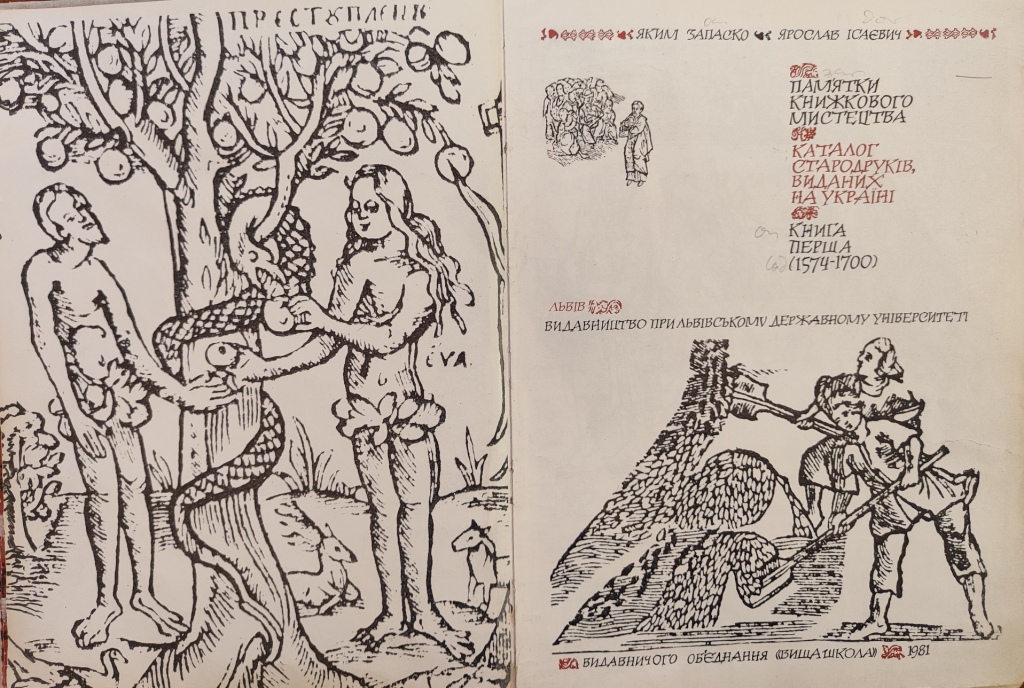 ПРЕСТУПЛЕНЇ
ЄУА.
ЯКИМ ЗАПАСКО ЯРОСЛАВ ІСАЄВИЧ
ПАМЯТКИ
КНИЖКОВОГО
МИСТЕЦТВА
КАТАЛОГ
СТАРОДРУКІВ,
ВИДАНИХ
НА УКРАЇНІ
КНИГА
ПЕРША
(1574-1700)
ЛЬВІВ
ВИДАВНИЦТВО ПРИ ЛЬВІВСЬКОМУ ДЕРЖАВНОМУ УНІВЕРСИТЕТІ
ВИДАВНИЧОГО ОБ'ЄДНАННЯ «ВИЩА ШКОЛА» 1981